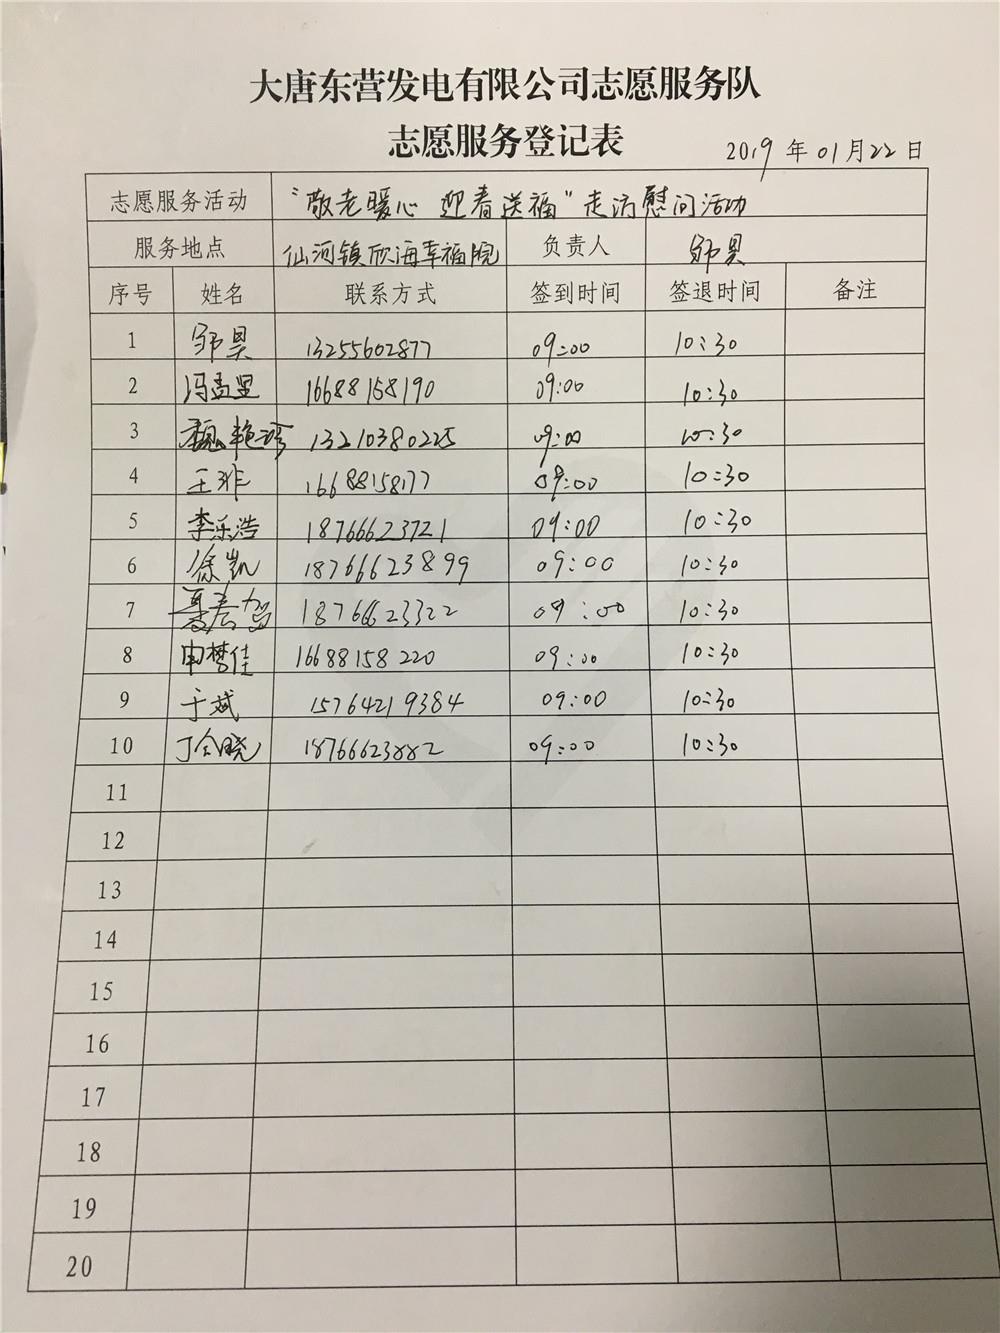 大唐东营发电有限公司志愿服务队
志愿服务登记表
2019年01月22日
志愿服务活动 “敬老暖心 迎春送福”走访慰问活动
服务地点 仙河镇欣海幸福院 负责人 邹昊
序号 姓名 联系方式 签到时间 签退时间 备注
1 邹昊 13255602877 09:00 10:30
2 冯孟里 16688158190 09:00 10:30
3 魏艳珍 13210380225 09:00 10:30
4 王非 16688158177 09:00 10:30
5 李乐浩 18766623721 09:00 10:30
6 徐凯 18766623899 09:00 10:30
7 18766623322 09:00 10:30
8 申梦佳 16688158220 09:00 10:30
9 于斌 15764219384 09:00 10:30
10 丁会晓 18766623882 09:00 10:30
11
12
13
14
15
16
17
18
19
20